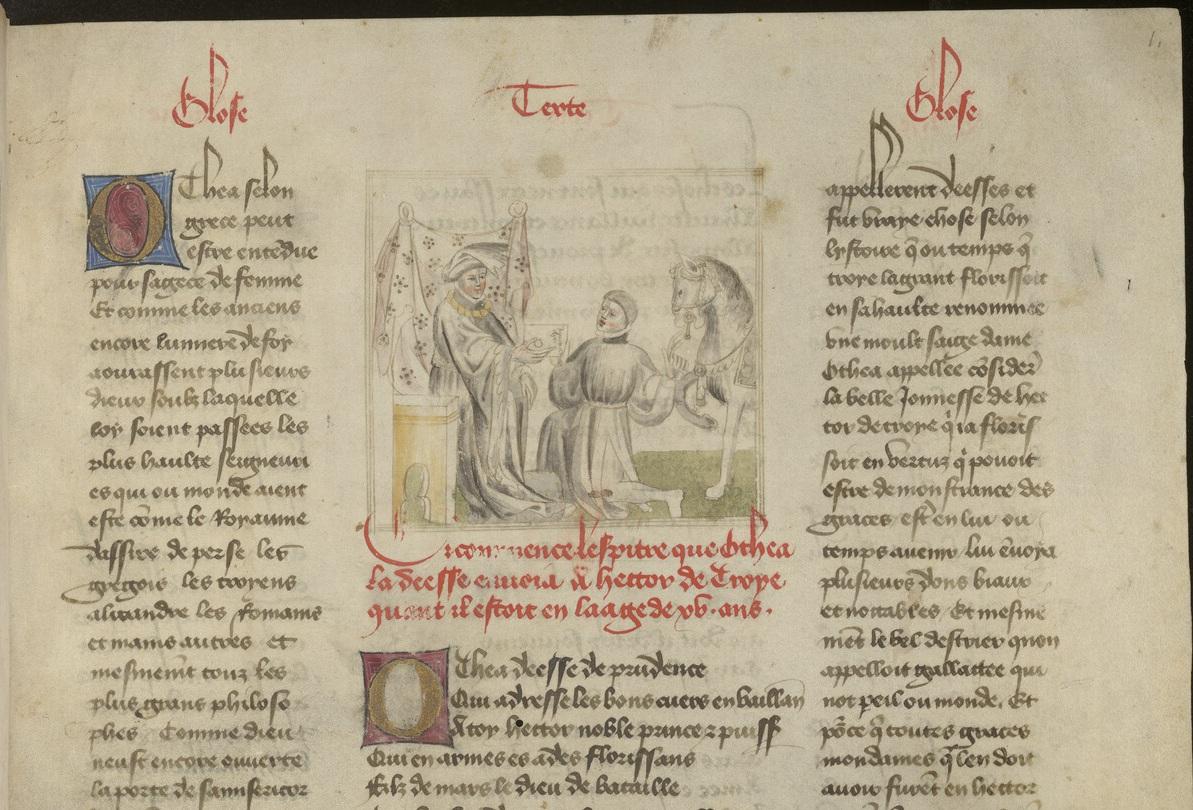 Glose
Othea selon
grece peut
estre entēdue
pour sagece de femme
Et comme les anciens
encore lumiere de foy
aourassent plusieurs
dieux soubz laquelle
loy soient passees les
plus haultes seigneuri
es qui ou monde aient
este cōme le Royaume
dassire de perse les
gregois les troyens
alixandre les Romains
et mains autres et
mesmemēt touz les
plus grans philoso
phes Comme dieu
neust encore ouverte
la porte de sa misericor
Texte
Ci commence lespitre que Othea
la deesse envoia a hector de Troye
quant il estoit en laage de xv. ans.
Othea deesse de prudence
Qui adresse les bons cuers en vaillan
A toy hector noble prince z puiss
Qui en armes es ades florissans
Filz de mars le dieu de bataille
Glose
appellerent deesses et
fut vraye chose selon
lystoire q̄ ou temps q̄
troye la grant florissoit
en sa haulte renommee
vne moult saige dame
Othea appellee cōsider̄
la belle Jonnesse de hec
tor de troye q̇ ia floris
soit en vertuz q̇ pouoit
estre demonstrance des
graces estr̄ en lui ou
temps auenir lui ēuoya
plusieurs dons biaux
et nottables Et mesme
mēt le bel destrier quon
appelloit gallattee qui
not peil ou monde. Et
pōce q̄ toutes graces
mondames q̄ len doit
auoir furēt en hector